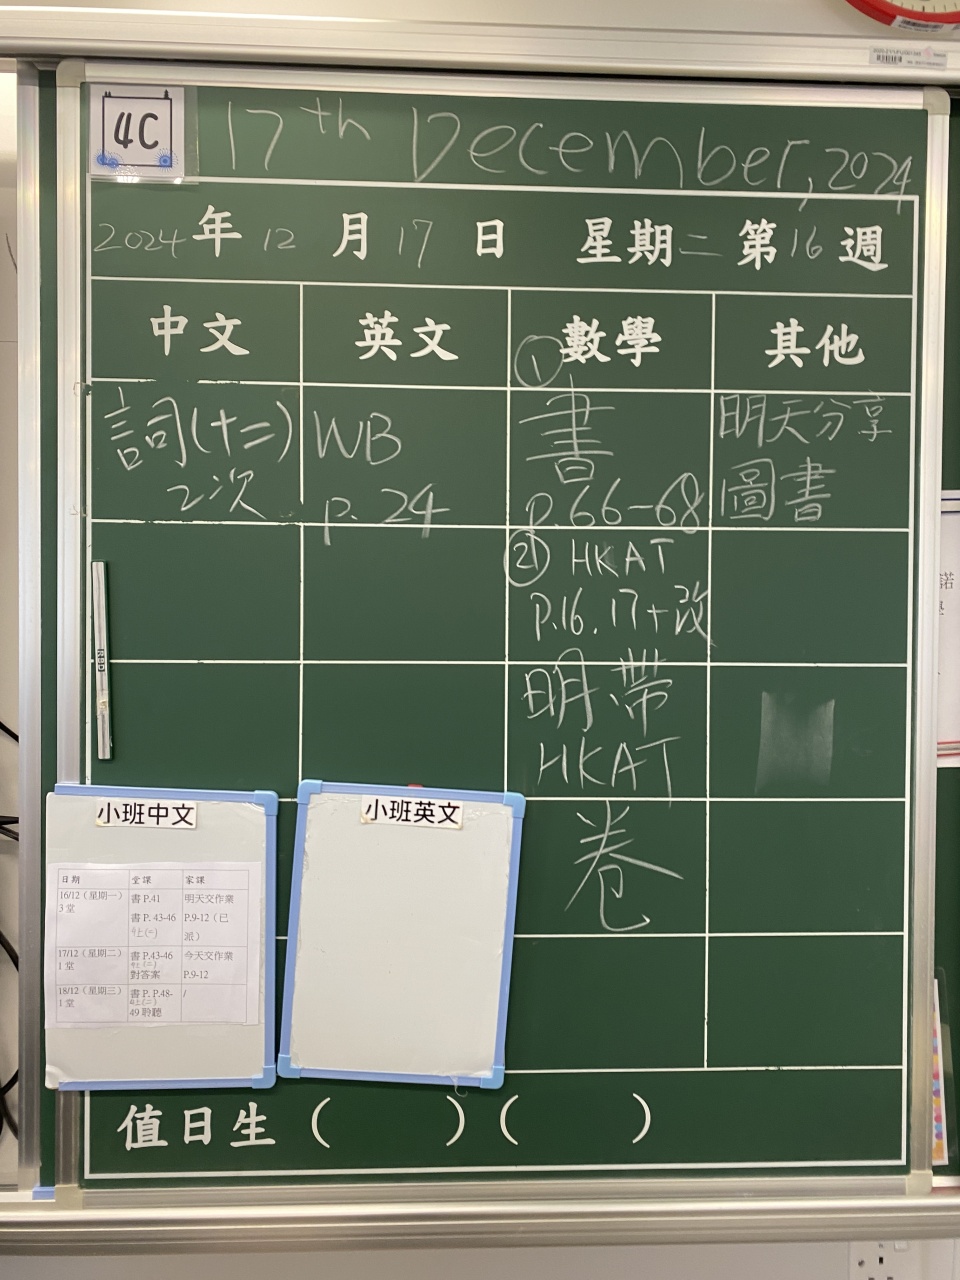 4C
17th December, 2024
2024年12月17日 星期二 第16週
中文 英文 數學 其他
詞(十二)
2次
WB
p. 24
①
書
p.66-68
② HKAT
p.16.17+改
明帶
HKAT
卷
明天分享
圖書
小班中文
日期 堂課 家課
16/12（星期一）
3堂
書 P.41
書 P. 43-46
明天交作業
P.9-12（已
派）
17/12（星期二）
1堂
書 P.43-46
對答案
今天交作業
P.9-12
18/12（星期三）
1堂
書 P. P.48-
49 聆聽
/
小班英文
值日生（ ）（ ）